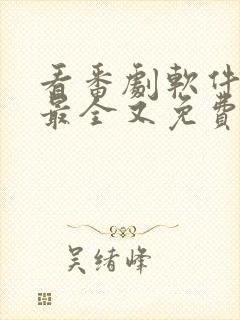 看番劇軟件
最全又免費
吴绪峰